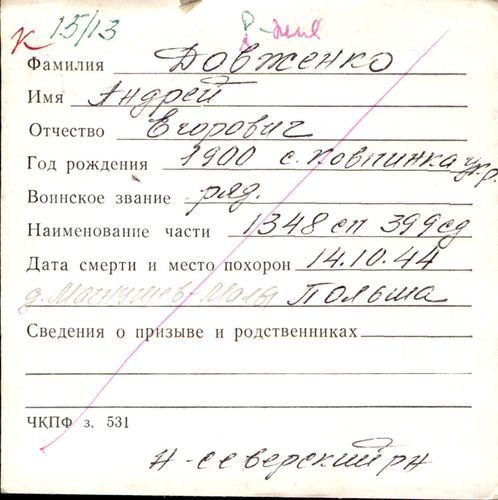 К 15/13
Фамилия Довженко
Имя Андрей
Отчество Егорович
Год рождения 1900 с.
Воинское звание ряд.
Наименование части 1348 сп 399 сд
Дата смерти и место похорон 14.10.44
д. Магнушев-Малы Польша
Сведения о призыве и родственниках
ЧКПФ з. 531
Н-северский рн